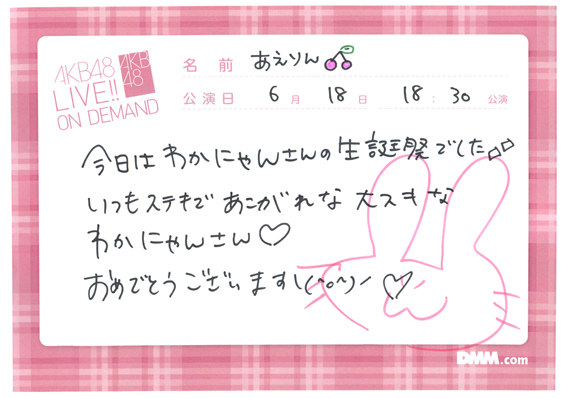 AKB48
LIVE!!
ON DEMAND
AKB
48
名 前 あえりん
公演日 6月 18日 18:30 公演
今日は わかにゃんさんの 生誕祭でした♪♪
いつもステキで あこがれな 大スキな
わかにゃんさん♡
おめでとうございます\(^o^)/ ♡
DMM.com